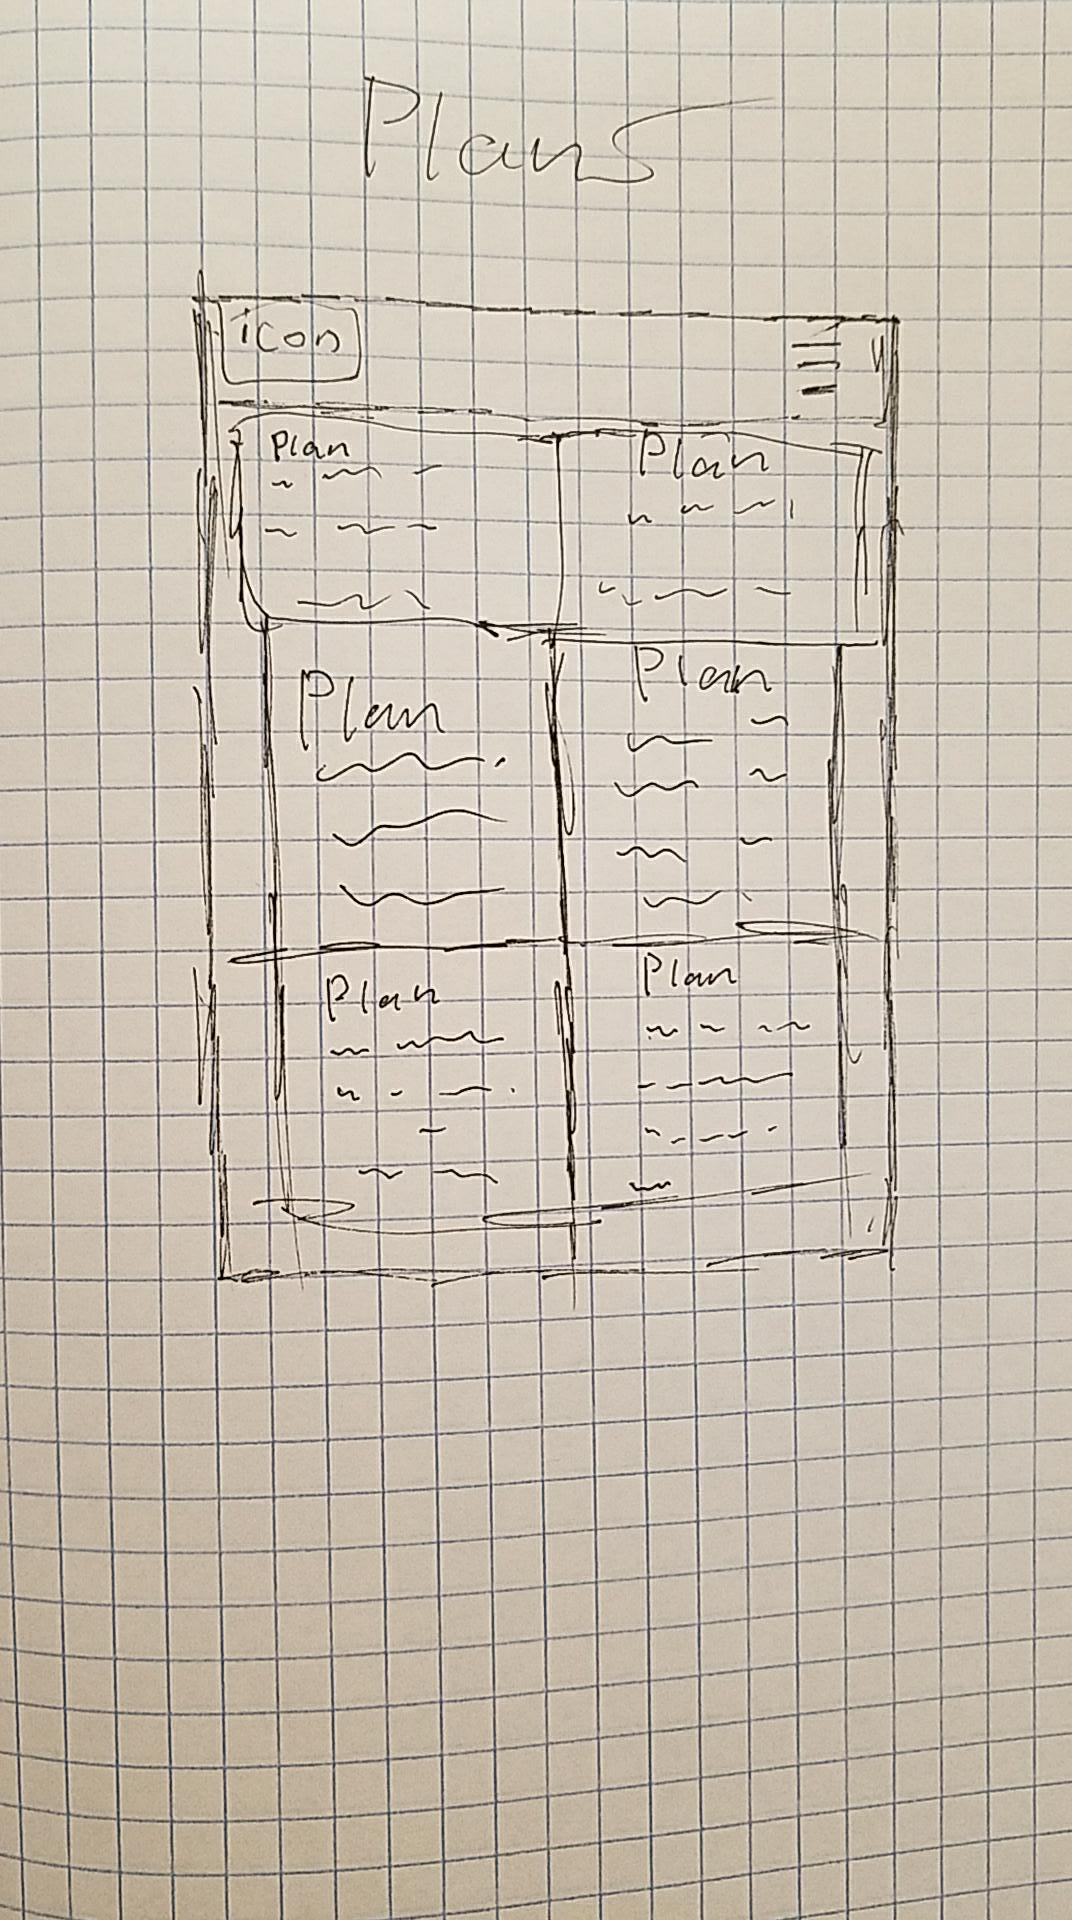 Plans
icon
Plan
Plan
Plan
Plan
Plan
Plan